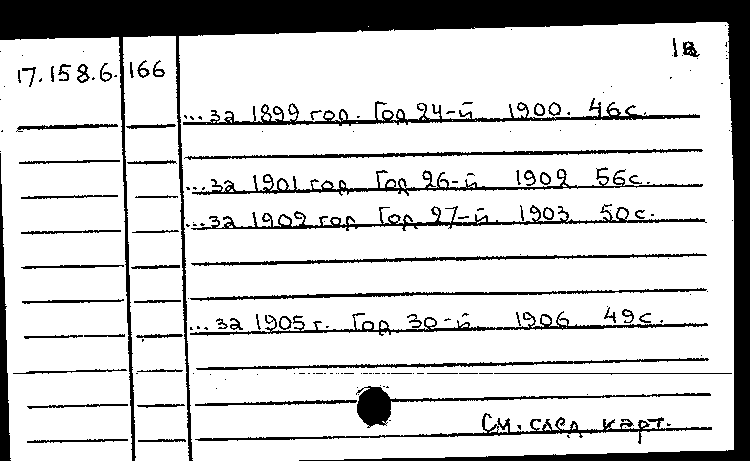 17.158.6. 166
...за 1899 год. Год 24-й 1900. 46с.
...за 1901 год Год 26-й. 1902 56с.
...за 1902 год Год 27-й. 1903. 50с.
...за 1905 г. Год 30-й 1906 49с.
См. след. карт.